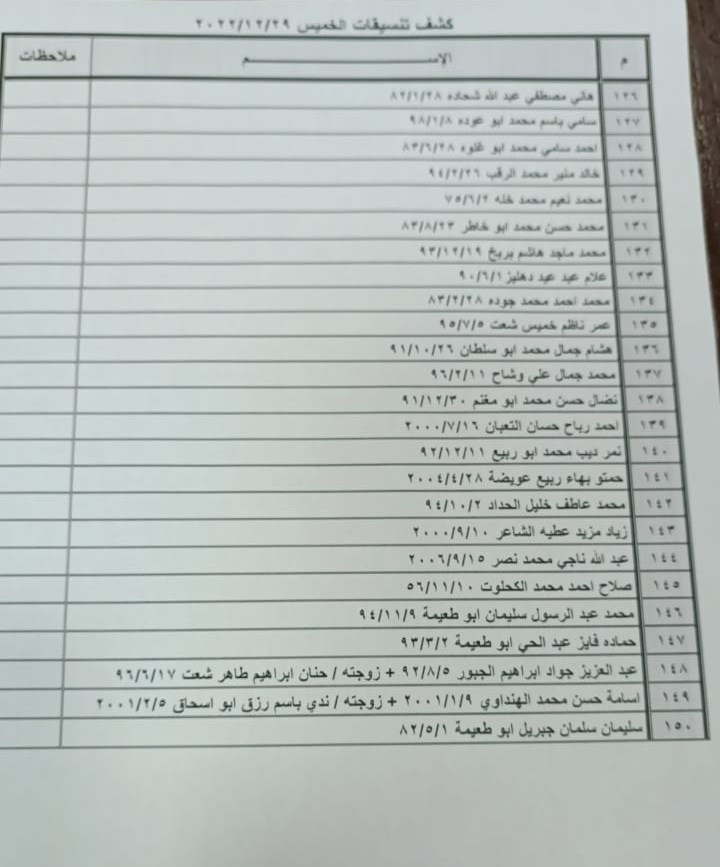 كشف تنسيقات الخميس ٢٠٢٢/١٢/٢٩
م الإســـــم ملاحظات
١٢٦ هاني مصطفى عبد الله شحاده ٨٢/١/٢٨
١٢٧ سامي باسم محمد ابو عوده ٩٨/١/٨
١٢٨ احمد سامي محمد ابو غلوه ٨٣/٦/٢٨
١٢٩ خالد منير محمد الرقب ٩٤/٢/٢٦
١٣٠ محمد نعيم محمد خله ٧٥/٦/٢
١٣١ محمد حسن محمد ابو خاطر ٨٣/٨/٢٣
١٣٢ محمد ماجد هاشم بريخ ٩٣/١٢/١٩
١٣٣ علام عبد عيد دهليز ٩٠/٦/١
١٣٤ محمد احمد محمد جوده ٨٣/٢/٢٨
١٣٥ عمر ناظم خميس شعت ٩٥/٧/٥
١٣٦ هشام جمال محمد ابو سلطان ٩١/١٠/٢٦
١٣٧ محمد جمال علي وشاح ٩٦/٢/١١
١٣٨ نضال حسن محمد ابو مغنم ٩١/١٢/٣٠
١٣٩ احمد رباح حسان التعبان ٢٠٠٠/٧/١٦
١٤٠ نمر ديب محمد ابو ربيع ٩٢/١٢/١١
١٤١ حمتو بهاء ربيع عويضة ٢٠٠٤/٤/٢٨
١٤٢ محمد عاطف خليل الحداد ٩٤/١٠/٢
١٤٣ زياد مزيد عطيه الشاعر ٢٠٠٠/٩/١٠
١٤٤ عبد الله ناجي محمد نصر ٢٠٠٦/٩/١٥
١٤٥ صلاح احمد محمد الكحلوت ٥٦/١١/١٠
١٤٦ محمد عبد الرسول سليمان ابو طعيمة ٩٤/١١/٩
١٤٧ حماده فايز عبد الحي ابو طعيمة ٩٣/٣/٢
١٤٨ عبد العزيز جواد ابراهيم الجبور ٩٢/٨/٥ + زوجته / حنان ابراهيم طاهر شعت ٩٦/٦/١٧
١٤٩ اسامة حسن محمد الهنداوي ٢٠٠١/١/٩ + زوجته / ندي باسم رزق ابو اسحاق ٢٠٠١/٢/٥
١٥٠ سليمان سلمان جبريل ابو طعيمة ٨٢/٥/١